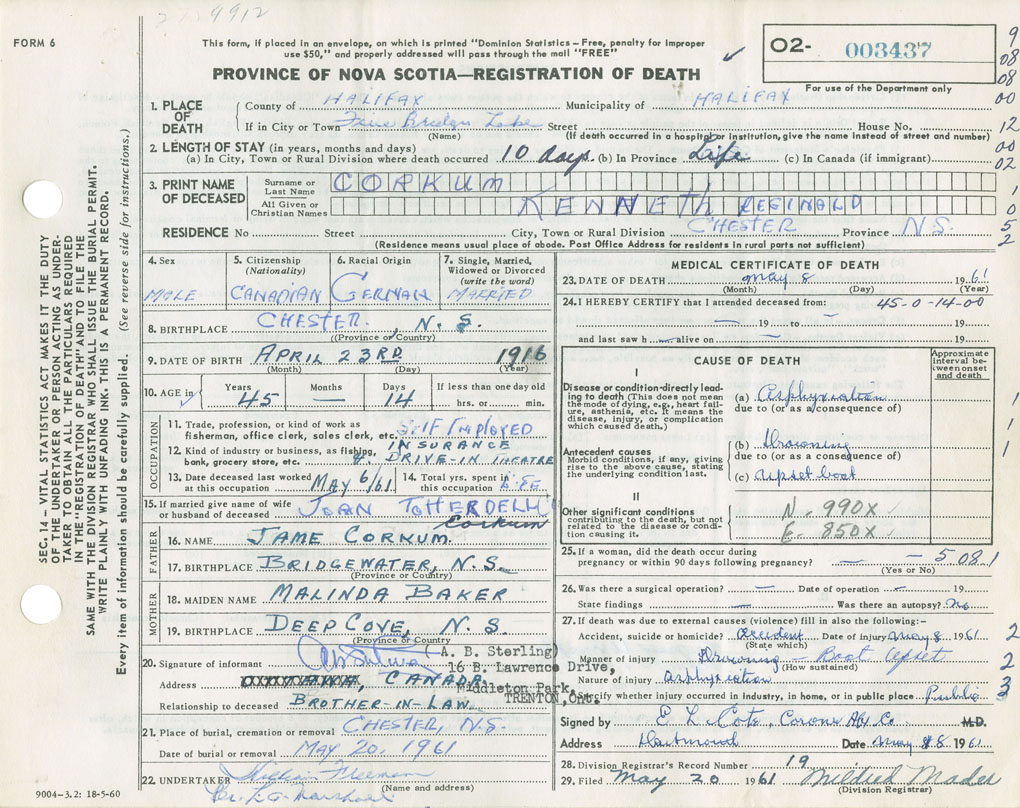 219912
FORM 6
This form, if placed in an envelope, on which is printed "Dominion Statistics - Free, penalty for improper
use $50," and properly addressed will pass through the mail "FREE"
PROVINCE OF NOVA SCOTIA—REGISTRATION OF DEATH
O2- 003437
For use of the Department only
9
08
08
00
12
00
02
1
0
5
2
SEC. 14 – VITAL STATISTICS ACT MAKES IT THE DUTY
OF THE UNDERTAKER OR PERSON ACTING AS UNDER-
TAKER TO OBTAIN ALL THE PARTICULARS REQUIRED
IN THE "REGISTRATION OF DEATH" AND TO FILE THE
SAME WITH THE DIVISION REGISTRAR WHO SHALL ISSUE THE BURIAL PERMIT.
WRITE PLAINLY WITH UNFADING INK. THIS IS A PERMANENT RECORD.
Every item of information should be carefully supplied. (See reverse side for instructions.)
1. PLACE OF DEATH
County of HALIFAX Municipality of HALIFAX
If in City or Town Lake Street House No.
(Name) (If death occurred in a hospital or institution, give the name instead of street and number)
2. LENGTH OF STAY (in years, months and days)
(a) In City, Town or Rural Division where death occurred 10 days. (b) In Province Life (c) In Canada (if immigrant)
3. PRINT NAME OF DECEASED
Surname or Last Name CORKUM
All Given or Christian Names KENNETH REGINALD
RESIDENCE No Street City, Town or Rural Division CHESTER Province N.S.
(Residence means usual place of abode. Post Office Address for residents in rural parts not sufficient)
4. Sex MALE
5. Citizenship (Nationality) CANADIAN
6. Racial Origin GERMAN
7. Single, Married, Widowed or Divorced (write the word) MARRIED
8. BIRTHPLACE CHESTER, N. S.
(Province or Country)
9. DATE OF BIRTH APRIL 23RD 1916
(Month) (Day) (Year)
10. AGE in Years 45 Months — Days 14 If less than one day old hrs. or min.
OCCUPATION
11. Trade, profession, or kind of work as
fisherman, office clerk, sales clerk, etc. SELF EMPLOYED
12. Kind of industry or business, as fishing, INSURANCE
bank, grocery store, etc. & DRIVE-IN THEATRE
13. Date deceased last worked at this occupation MAY 6/61 14. Total yrs. spent in this occupation LIFE
15. If married give name of wife or husband of deceased JOAN Corkum
FATHER
16. NAME JAME CORKUM.
17. BIRTHPLACE BRIDGEWATER, N.S.
(Province or Country)
MOTHER
18. MAIDEN NAME MALINDA BAKER
19. BIRTHPLACE DEEP COVE, N. S.
(Province or Country
20. Signature of informant (A. B. Sterling)
16 B. Lawrence Drive,
Address CANADA Middleton Park,
TRENTON, Ont.
Relationship to deceased BROTHER-IN-LAW
21. Place of burial, cremation or removal CHESTER, N.S.
Date of burial or removal MAY 20, 1961
22. UNDERTAKER Freeman
(Name and address)
9004-3.2: 18-5-60
MEDICAL CERTIFICATE OF DEATH
23. DATE OF DEATH May 8 1961
(Month) (Day) (Year)
24. I HEREBY CERTIFY that I attended deceased from: 45-0-14-00
— 19 to — 19
and last saw h — alive on — 19
CAUSE OF DEATH
Approximate interval between onset and death
I
Disease or condition directly lead-
ing to death (This does not mean
the mode of dying, e.g., heart fail-
ure, asthenia, etc. It means the
disease, injury, or complication
which caused death.)
(a) Asphyxiation
due to (or as a consequence of)
Antecedent causes
Morbid conditions, if any, giving
rise to the above cause, stating
the underlying condition last.
(b) Drowning
due to (or as a consequence of)
(c) upset boat
II
Other significant conditions
contributing to the death, but not
related to the disease or condi-
tion causing it.
N - 990X
E - 850X
1
1
1
25. If a woman, did the death occur during
pregnancy or within 90 days following pregnancy? — 5081
(Yes or No)
26. Was there a surgical operation? — Date of operation — 19
State findings — Was there an autopsy? No
27. If death was due to external causes (violence) fill in also the following:-
Accident, suicide or homicide? Accident Date of injury May 8 1961 2
(State which)
Manner of injury Drowning — Boat Upset 2
(How sustained)
Nature of injury asphyxiation
Specify whether injury occurred in industry, in home, or in public place Public 3
Signed by M.D.
Address Dartmouth Date May 1961
28. Division Registrar's Record Number 19
29. Filed May 20 1961 Mildred Mader
(Division Registrar)